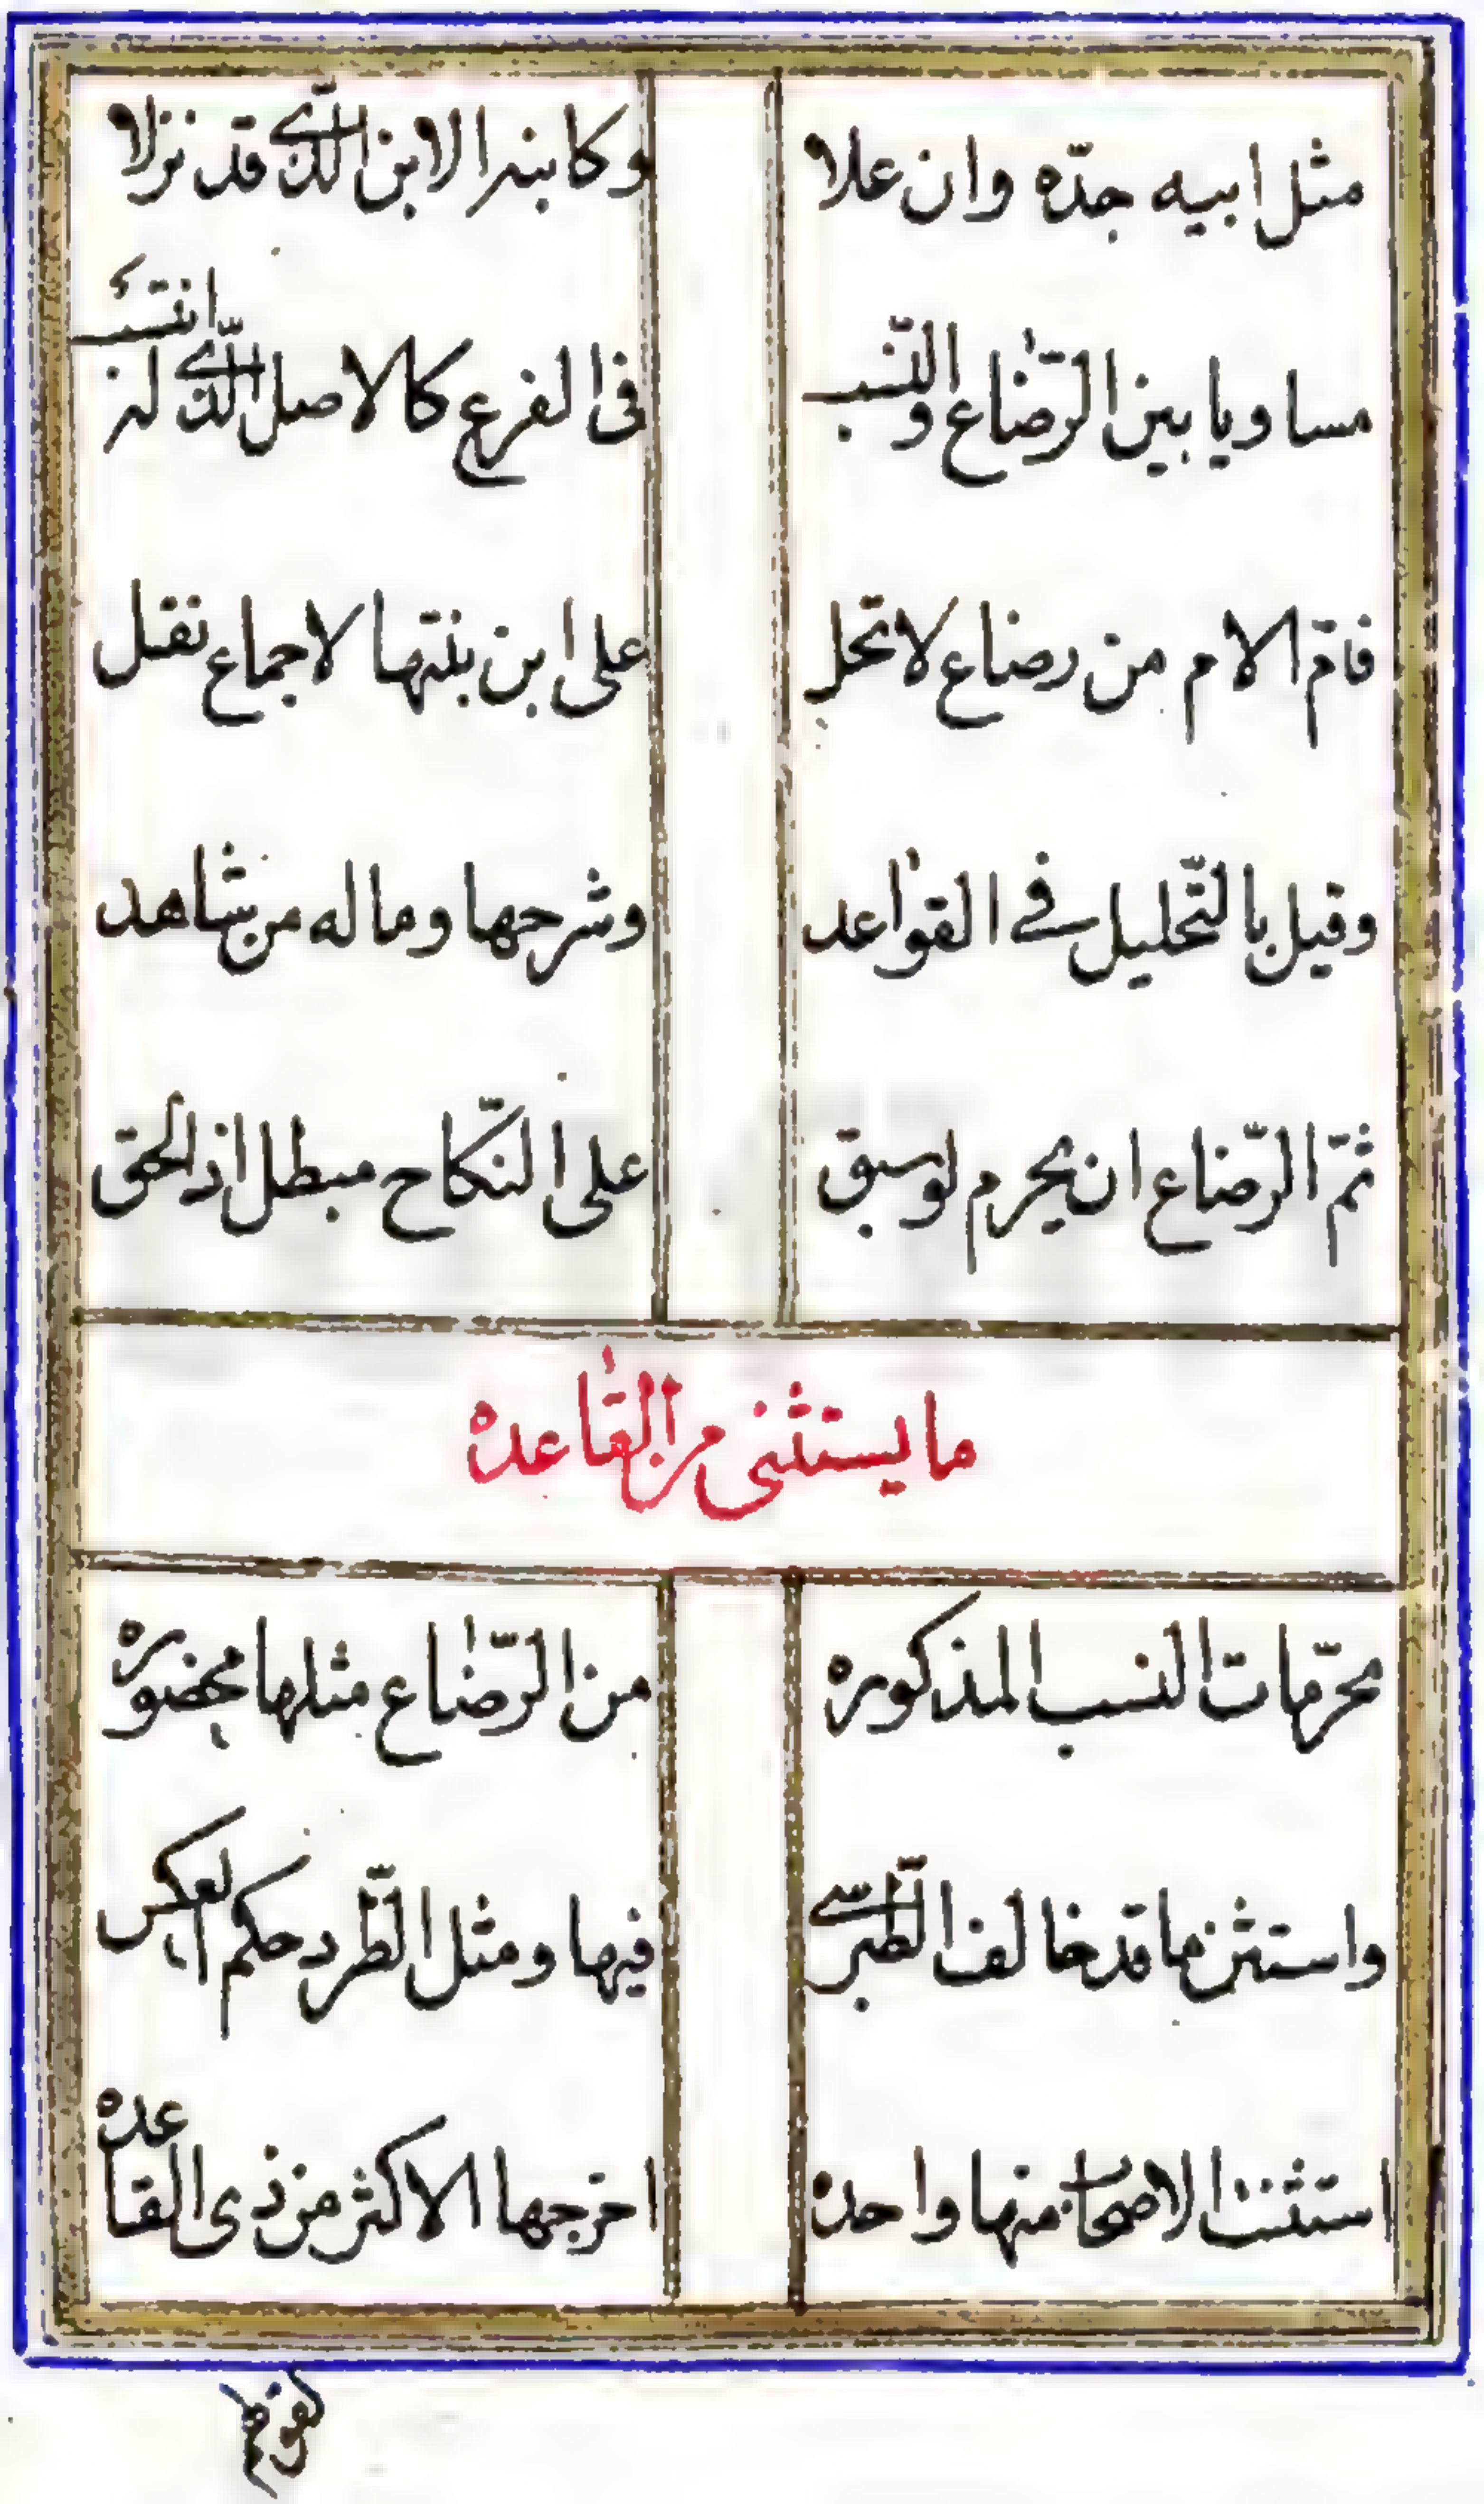 مثل ابيه جدّه وان علا وكابنه الابن الّذي قد نزلا
مساويا بين الرّضاع والنّسب في الفرع كالاصل الّذي له انتسب
فامّ الام من رضاع لا تحل على ابن بنتها لاجماع نقل
وقيل بالتّحليل في القواعد وشرحها وماله من شاهد
ثمّ الرّضاع ان يحرم لو سبق على النّكاح مبطل اذ لحق
ما يستثنى من القاعده
محرّمات النسب المذكوره من الرّضاع مثلها محضوره
واستثن ما قد خالف الطّبرسي فيها ومثل الطّرد حكم العكس
استثنت الاصحاب منها واحده اخرجها الاكثر من ذي القاعده
لقولهم